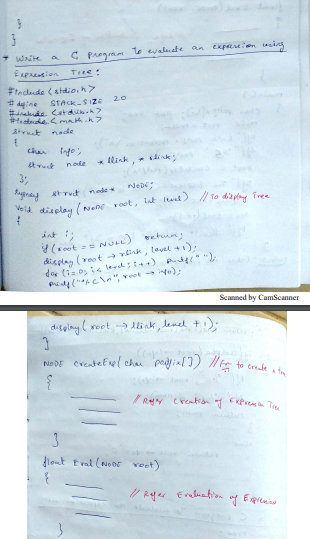 }
}
* Write a C program to evaluate an expression using
Expression Tree:
#include <stdio.h>
#define STACK_SIZE 20
#include <stdlib.h>
#include <math.h>
struct node
{
char info;
struct node *llink, *rlink;
};
typedef struct node* NODE;
void display (NODE root, int level) // To display Tree
{
int i;
if (root == NULL) return;
display (root → rlink, level+1);
for (i=0; i< level; i++) printf(" ");
printf("%c\n", root → info);
Scanned by CamScanner
display (root → llink, level + 1);
}
NODE createExp (char postfix[]) // Fn to create a tree
{
// Refer Creation of Expression Tree
}
float Eval (NODE root)
{
// Refer Evaluation of Expression
}